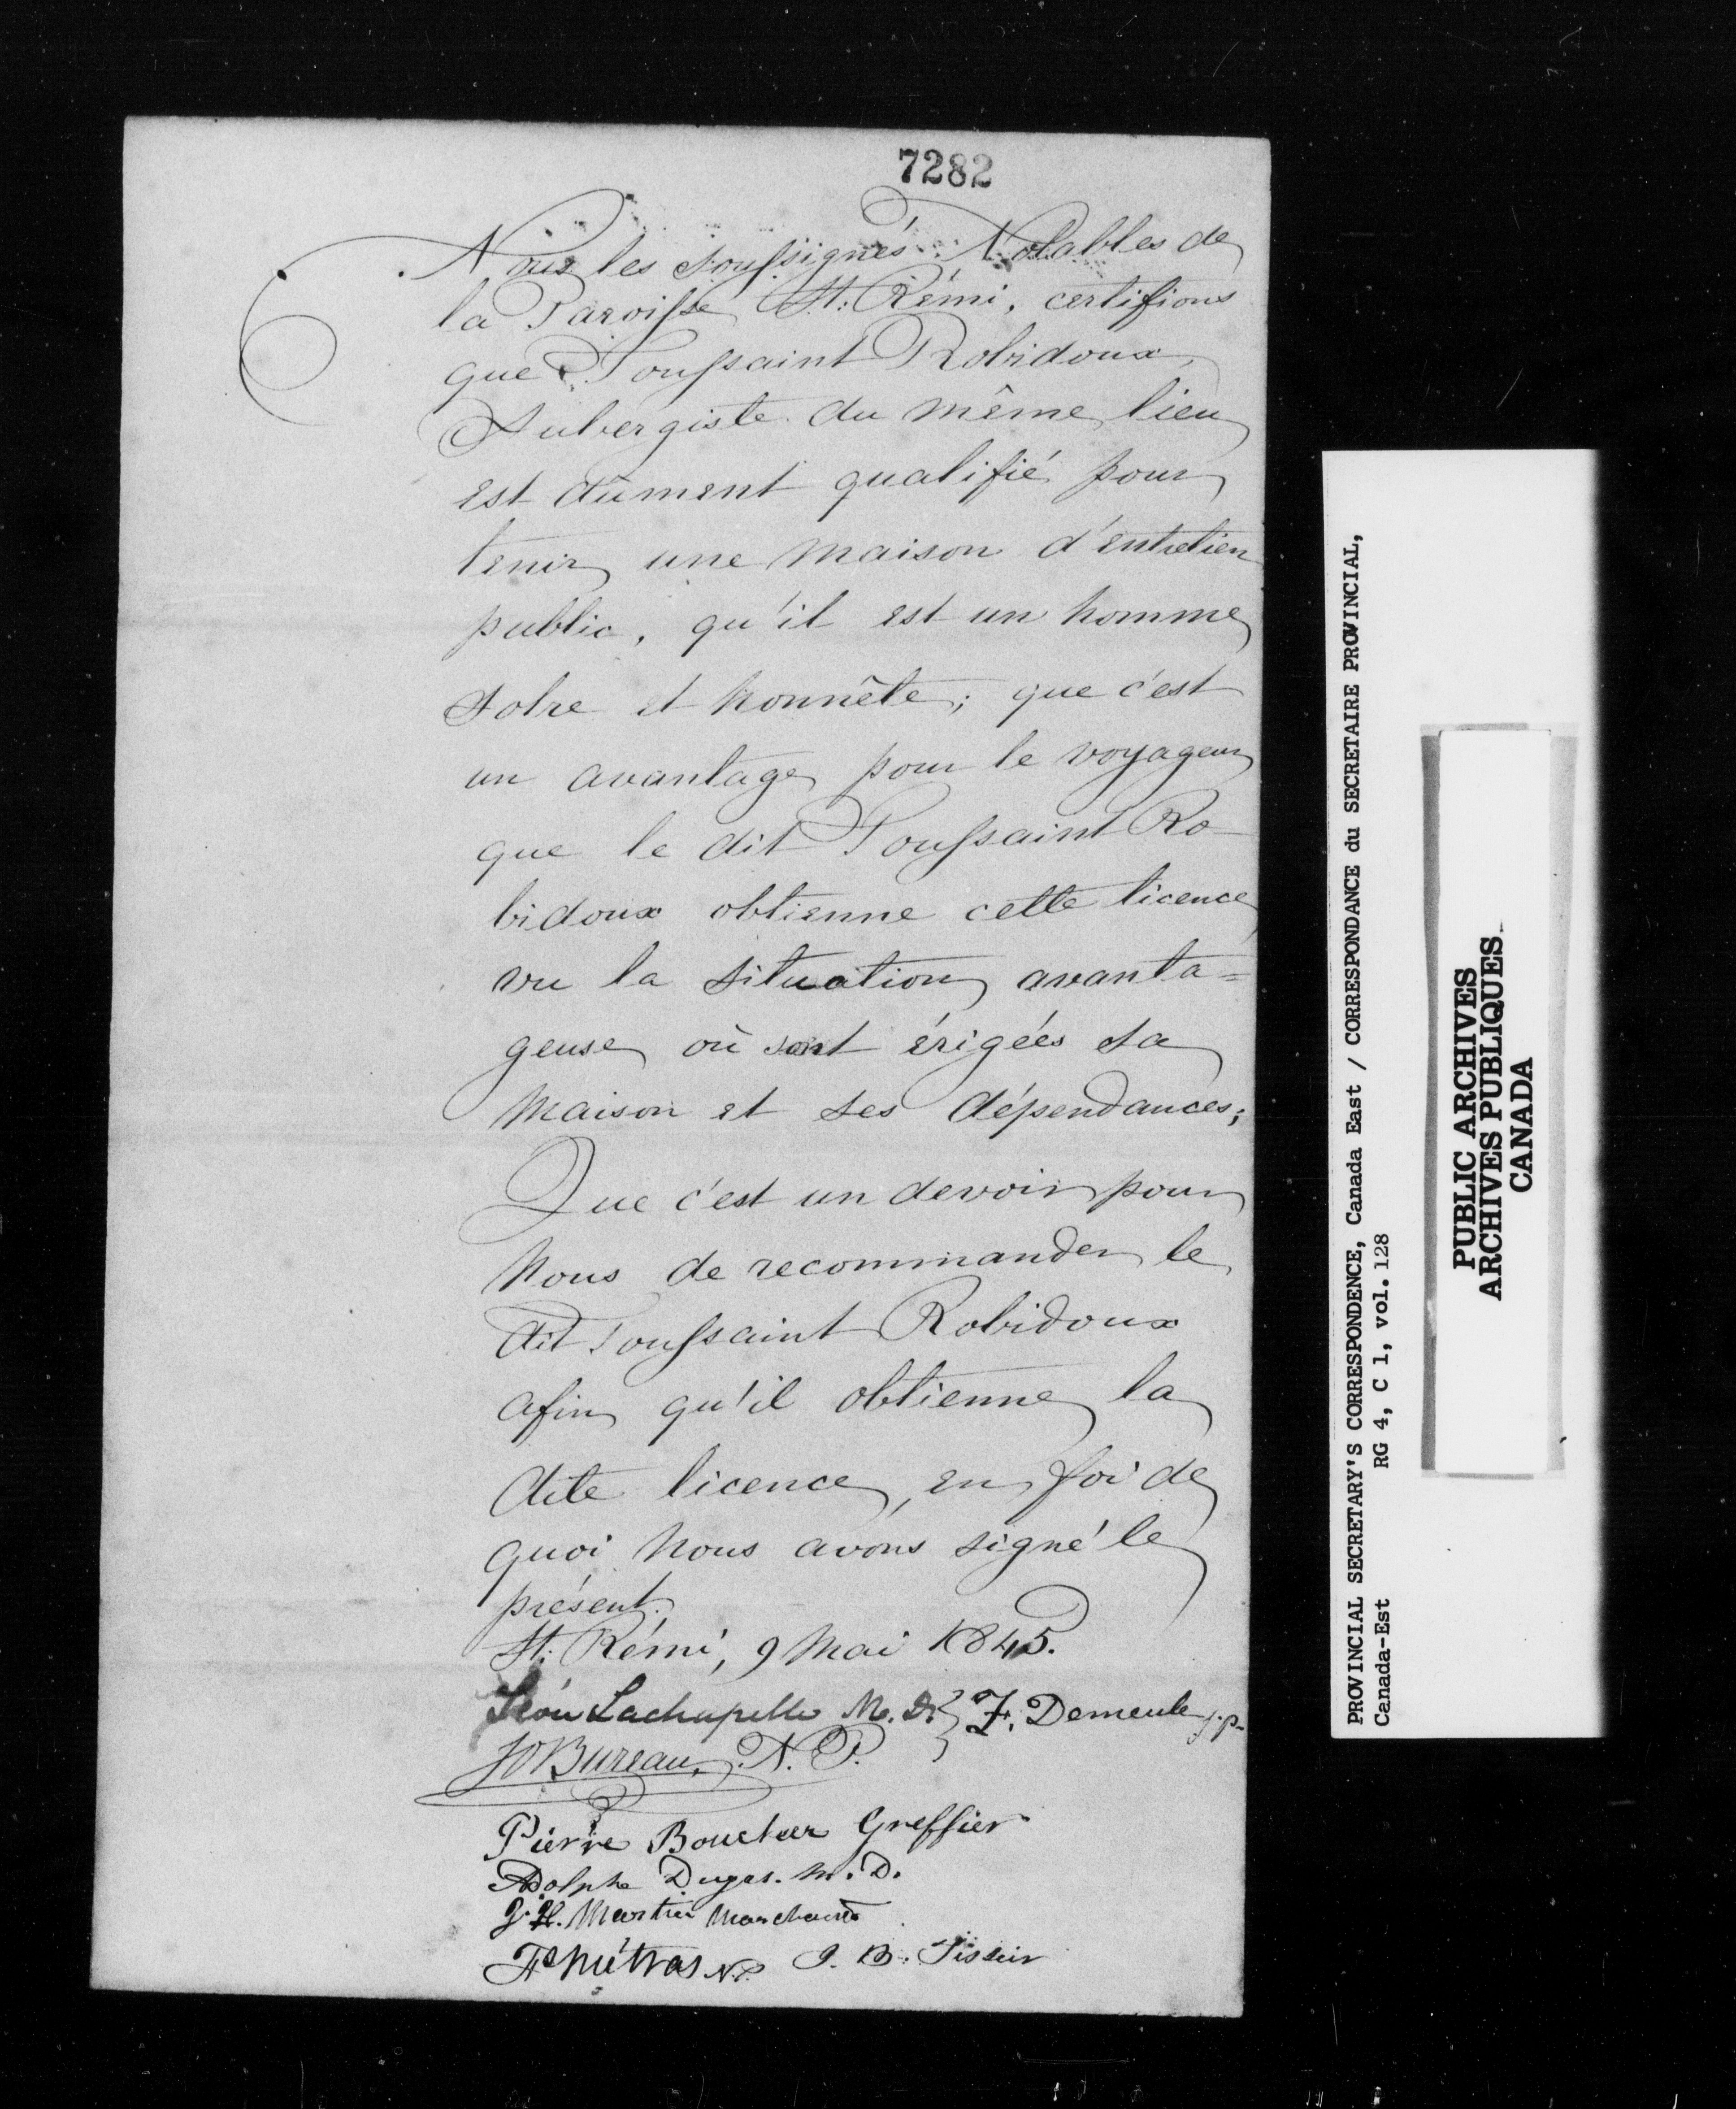 7282
Nous les soussignés Notables de
la Paroisse St: Rémi, certifions
que Toussaint Robidoux,
Aubergiste du même lieu
est dûment qualifié pour
tenir une maison d'entretien
public, qu'il est un homme
sobre et honnête; que c'est
un avantage pour le voyageur
que le dit Toussaint Ro-
bidoux obtienne cette licence
vu la situation avanta=
geuse où sont érigées sa
maison et ses dépendances;
Que c'est un devoir pour
nous de recommander le
dit Toussaint Robidoux
afin qu'il obtienne la
dite licence, en foi de
quoi nous avons signé le
présent.
St: Rémi, 9 Mai 1845.
Léon Lachapelle M.D. F. Demeule j.p.
JO Bureau, N.P.
Pierre Boucher Greffier
Adolphe Dugas. M.D.
J. H. Martin Marchand
Métras N.P. J. B. Tissier
PROVINCIAL SECRETARY'S CORRESPONDENCE, Canada East / CORRESPONDANCE du SECRETAIRE PROVINCIAL,
Canada-Est RG 4, C 1, vol. 128
PUBLIC ARCHIVES
ARCHIVES PUBLIQUES
CANADA